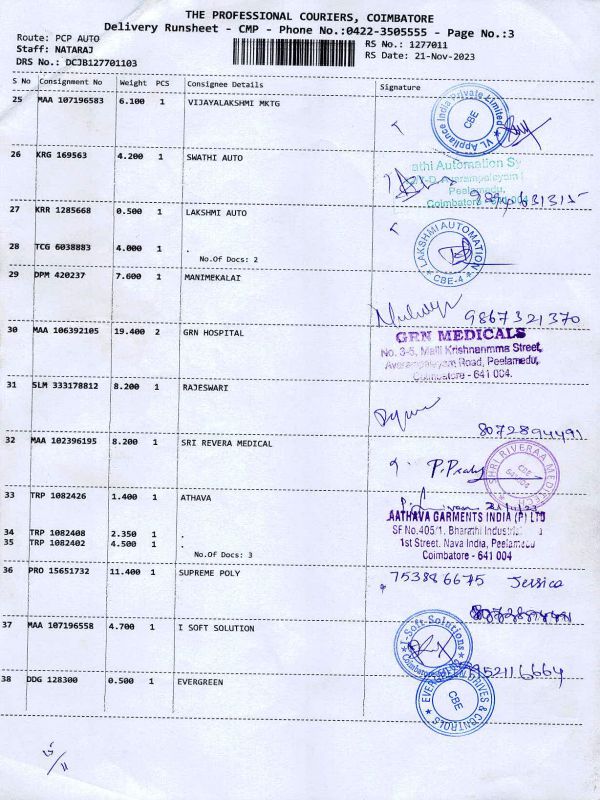 THE PROFESSIONAL COURIERS, COIMBATORE
Delivery Runsheet - CMP - Phone No.:0422-3505555 - Page No.:3
Route: PCP AUTO
Staff: NATARAJ
DRS No.: DCJB127701103
RS No.: 1277011
RS Date: 21-Nov-2023
S No Consignment No Weight PCS Consignee Details Signature
25 MAA 107196583 6.100 1 VIJAYALAKSHMI MKTG
VL Appliance India Private Limited
CBE
26 KRG 169563 4.200 1 SWATHI AUTO
athi Automation Sy
Avarampalayam
Peelamedu,
Coimbatore
27 KRR 1285668 0.500 1 LAKSHMI AUTO
28 TCG 6038883 4.000 1 .
No.Of Docs: 2
LAKSHMI AUTOMATION
CBE-4
29 DPM 420237 7.600 1 MANIMEKALAI
9867321370
30 MAA 106392105 19.400 2 GRN HOSPITAL
GRN MEDICALS
No. 3-5, Malli Krishnanmma Street,
Avarampalayam Road, Peelamedu,
Coimbatore - 641 004.
31 SLM 333178812 8.200 1 RAJESWARI
8072894491
32 MAA 102396195 8.200 1 SRI REVERA MEDICAL
SHRI RIVERAA MEDITECH
CBE
641 004
33 TRP 1082426 1.400 1 ATHAVA
AATHAVA GARMENTS INDIA (P) LTD
SF No.405/1, Bharathi
1st Street, Nava India, Peelamedu
Coimbatore - 641 004
34 TRP 1082408 2.350 1 .
35 TRP 1082402 4.500 1 .
No.Of Docs: 3
36 PRO 15651732 11.400 1 SUPREME POLY
753886675 Jessica
37 MAA 107196558 4.700 1 I SOFT SOLUTION
I-Soft-Solutions
952116664
38 DDG 128300 0.500 1 EVERGREEN
EVERGREEN DRIVES & CONTROLS
CBE